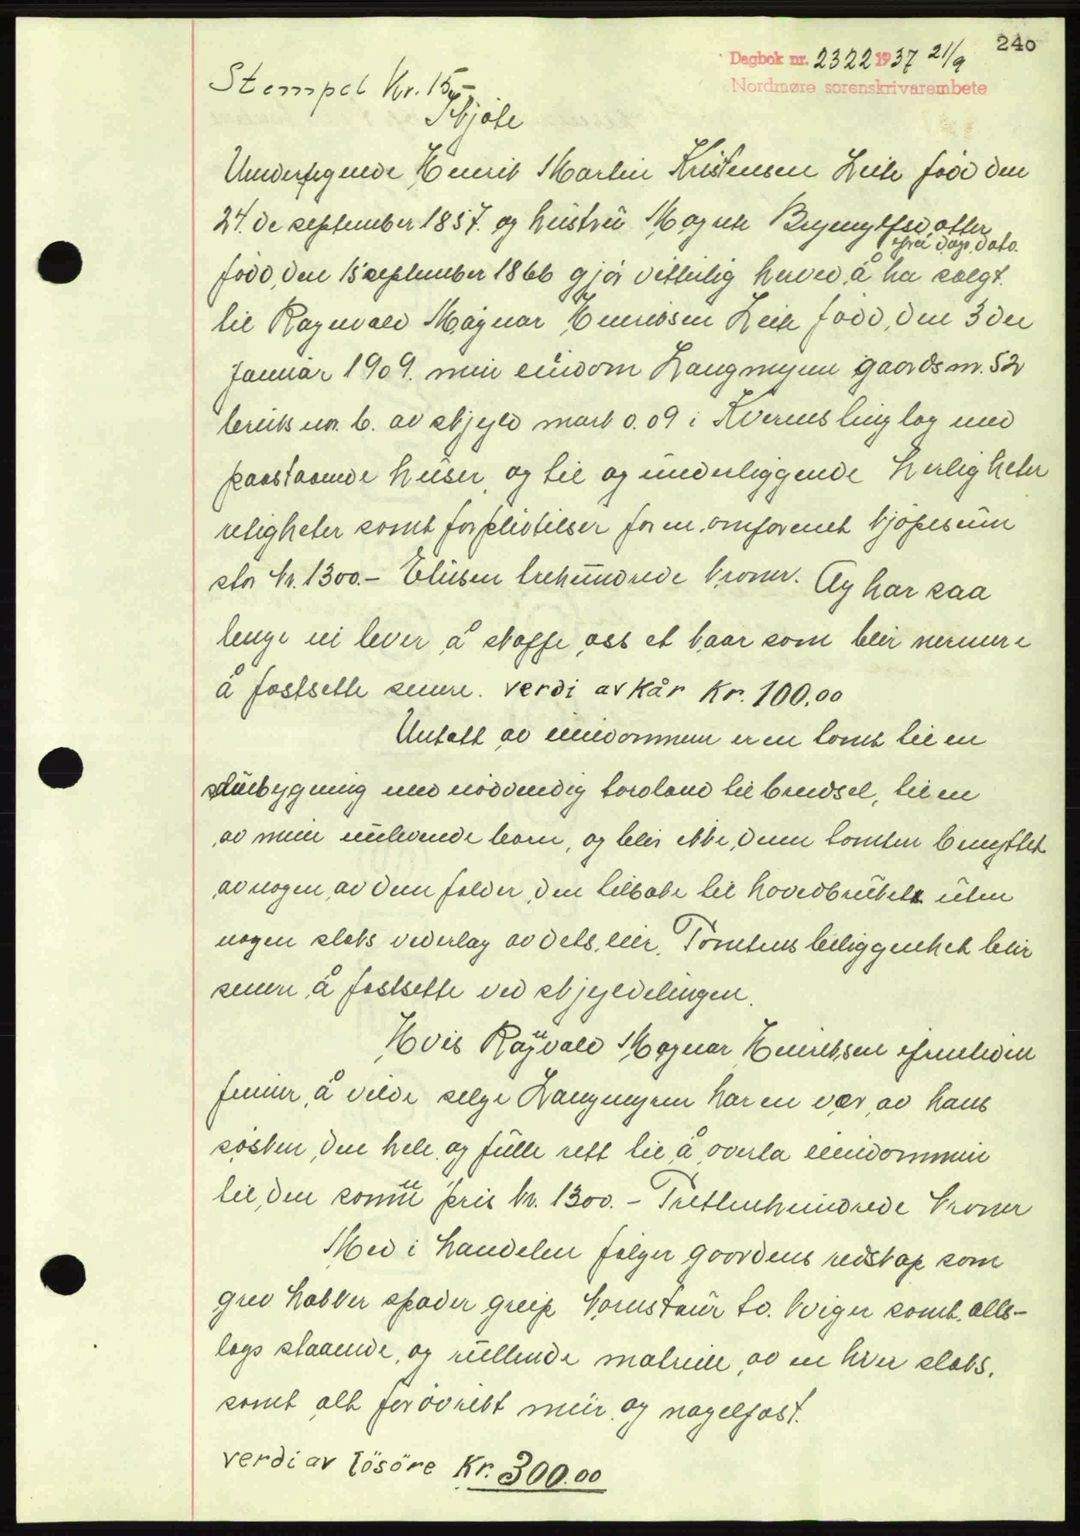 240
Dagbok nr. 2322 1937 21/9
Nordmøre sorenskrivarembete
Stempel Kr. 15,-
Skjøte
Undertegnede Henrik Martin Kristensen Leik født den
24. de september 1857. og hustru Magnte Brynylfsdatter
frá dags dato.
född, den 15 september 1866 gjör vitterlig herved, å ha solgt
til Ragnvald Magnar Henriksen Leik född, den 3 die
januar 1909. min eiindom Langmyrn gaardsnr. 52
bruks nr. 6. av skjyld mark 0.09 i Kvernes tinglag med
paastaaende huser, og til og underliggende herligheter
retigheter samt forpligtelser for en omforenet kjøpesum
stor kr. 1300.- Ettusen trehundrede kroner. Og har saa
lenge vi lever å skaffe oss et kaar som blir nermere
å fastsette senere. verdi av Kår Kr. 100,00
Untatt av eiendommen er en tomt til en
stubygning med nödvendig torvland til brendsel, til en
av mine umhevende barn, og blir ikke denne tomten benyttet
av nogen av dem falder den tilbake til hovedbruket uten
nogen slaks vederlag av dets eier. Tomtens beliggenhet blir
senere å fastsette ved skjyldelingen.
Hvis Ragnvald Magnar Henriksen i fremtiden
finner å vilde selge Langmyrn har en vær av hans
søsken den hele og fulle rett til å overta eiindommen
til den samme pris kr. 1300.- Trettenhundrede kroner
Med i handelen følger gaardens redskap som
grev hakker spader greip kornstaur to. kviger samt alls-
lags staaende og rullende matriell av en hver slaks.
samt alt forøvrikt mur og nagelfast.
verdi av lösöre Kr. 300.00